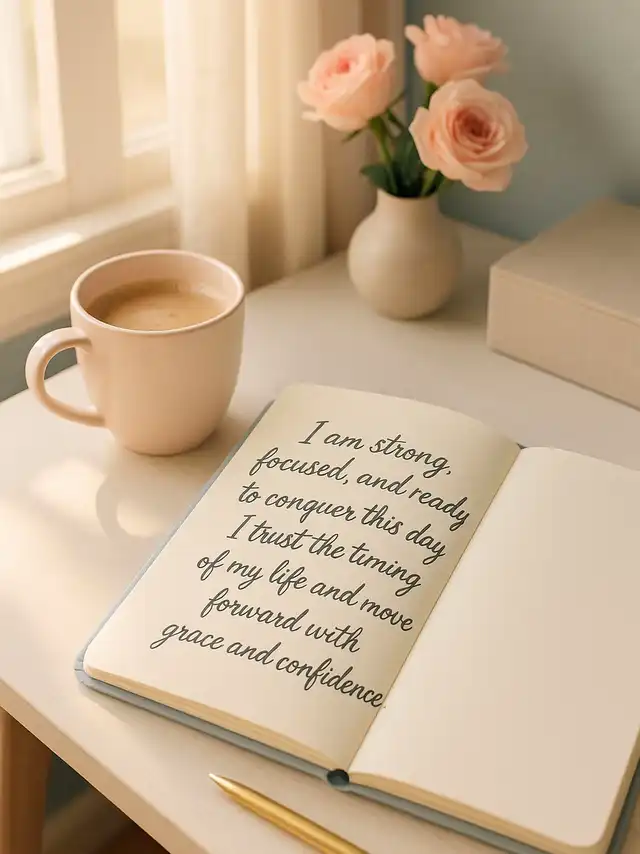 I am strong,
focused, and ready
to conquer this day
I trust the timing
of my life and move
forward with
grace and confidence.